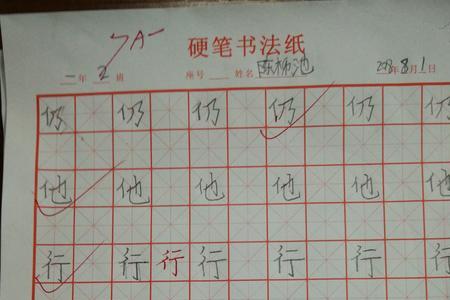 A-
硬笔书法纸
二年 2 班 座号 姓名 陈杨池 年 8 月 1 日
仍 仍 仍 仍 仍 仍
他 他 他 他 他 他
行 行 行 行 行 行 行